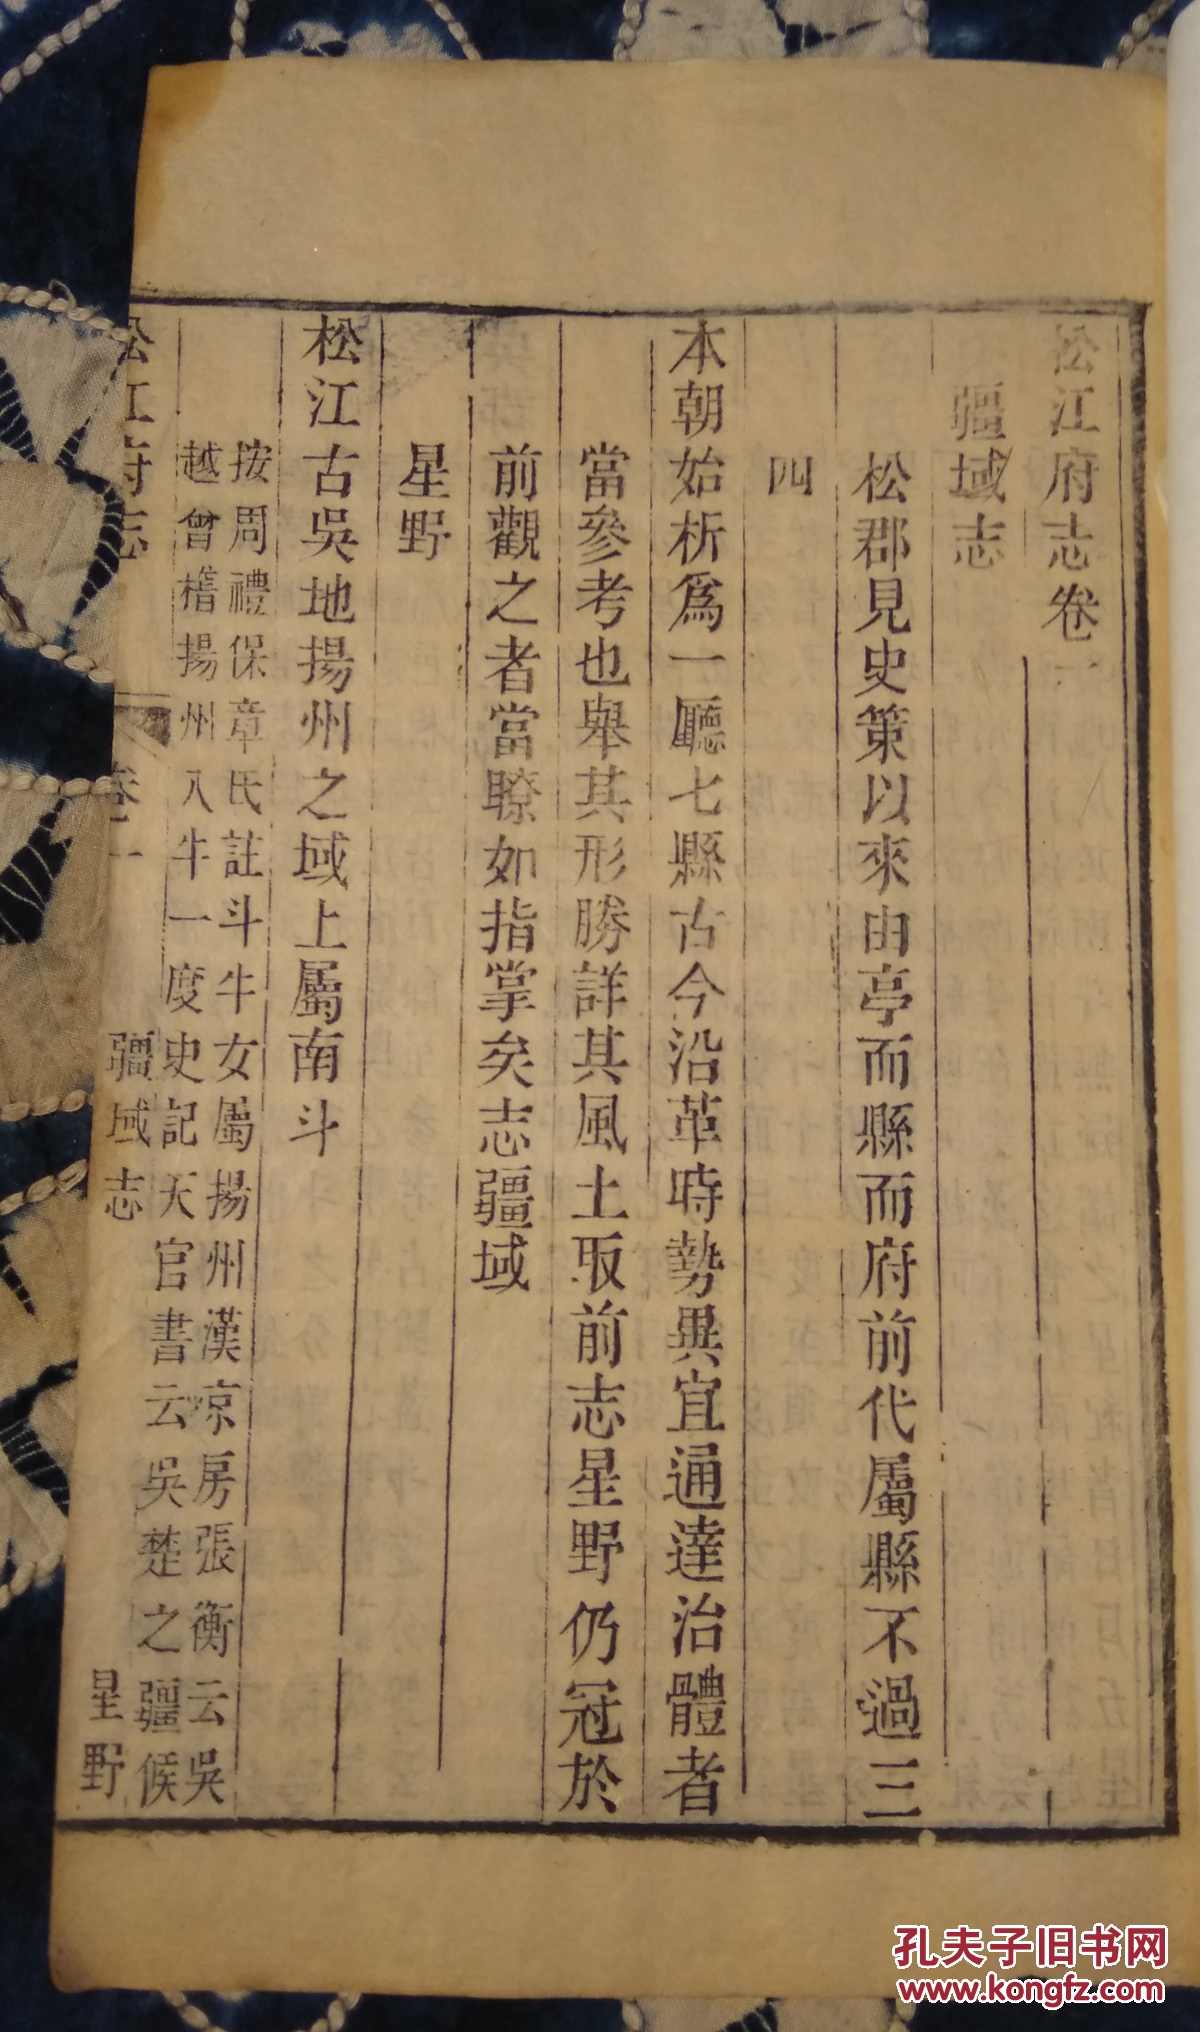 松江府志卷一
疆域志
松郡見史策以來由亭而縣而府前代屬縣不過三
四
本朝始析爲一廳七縣古今沿革時勢異宜通達治體者
當參考也舉其形勝詳其風土取前志星野仍冠於
前觀之者當瞭如指掌矣志疆域
星野
松江古吳地揚州之域上屬南斗
按周禮保章氏註斗牛女屬揚州漢京房張衡云吳
越會稽揚州入牛一度史記天官書云吳楚之疆候
松江府志 卷一 疆域志 星野
孔夫子旧书网
www.kongfz.com